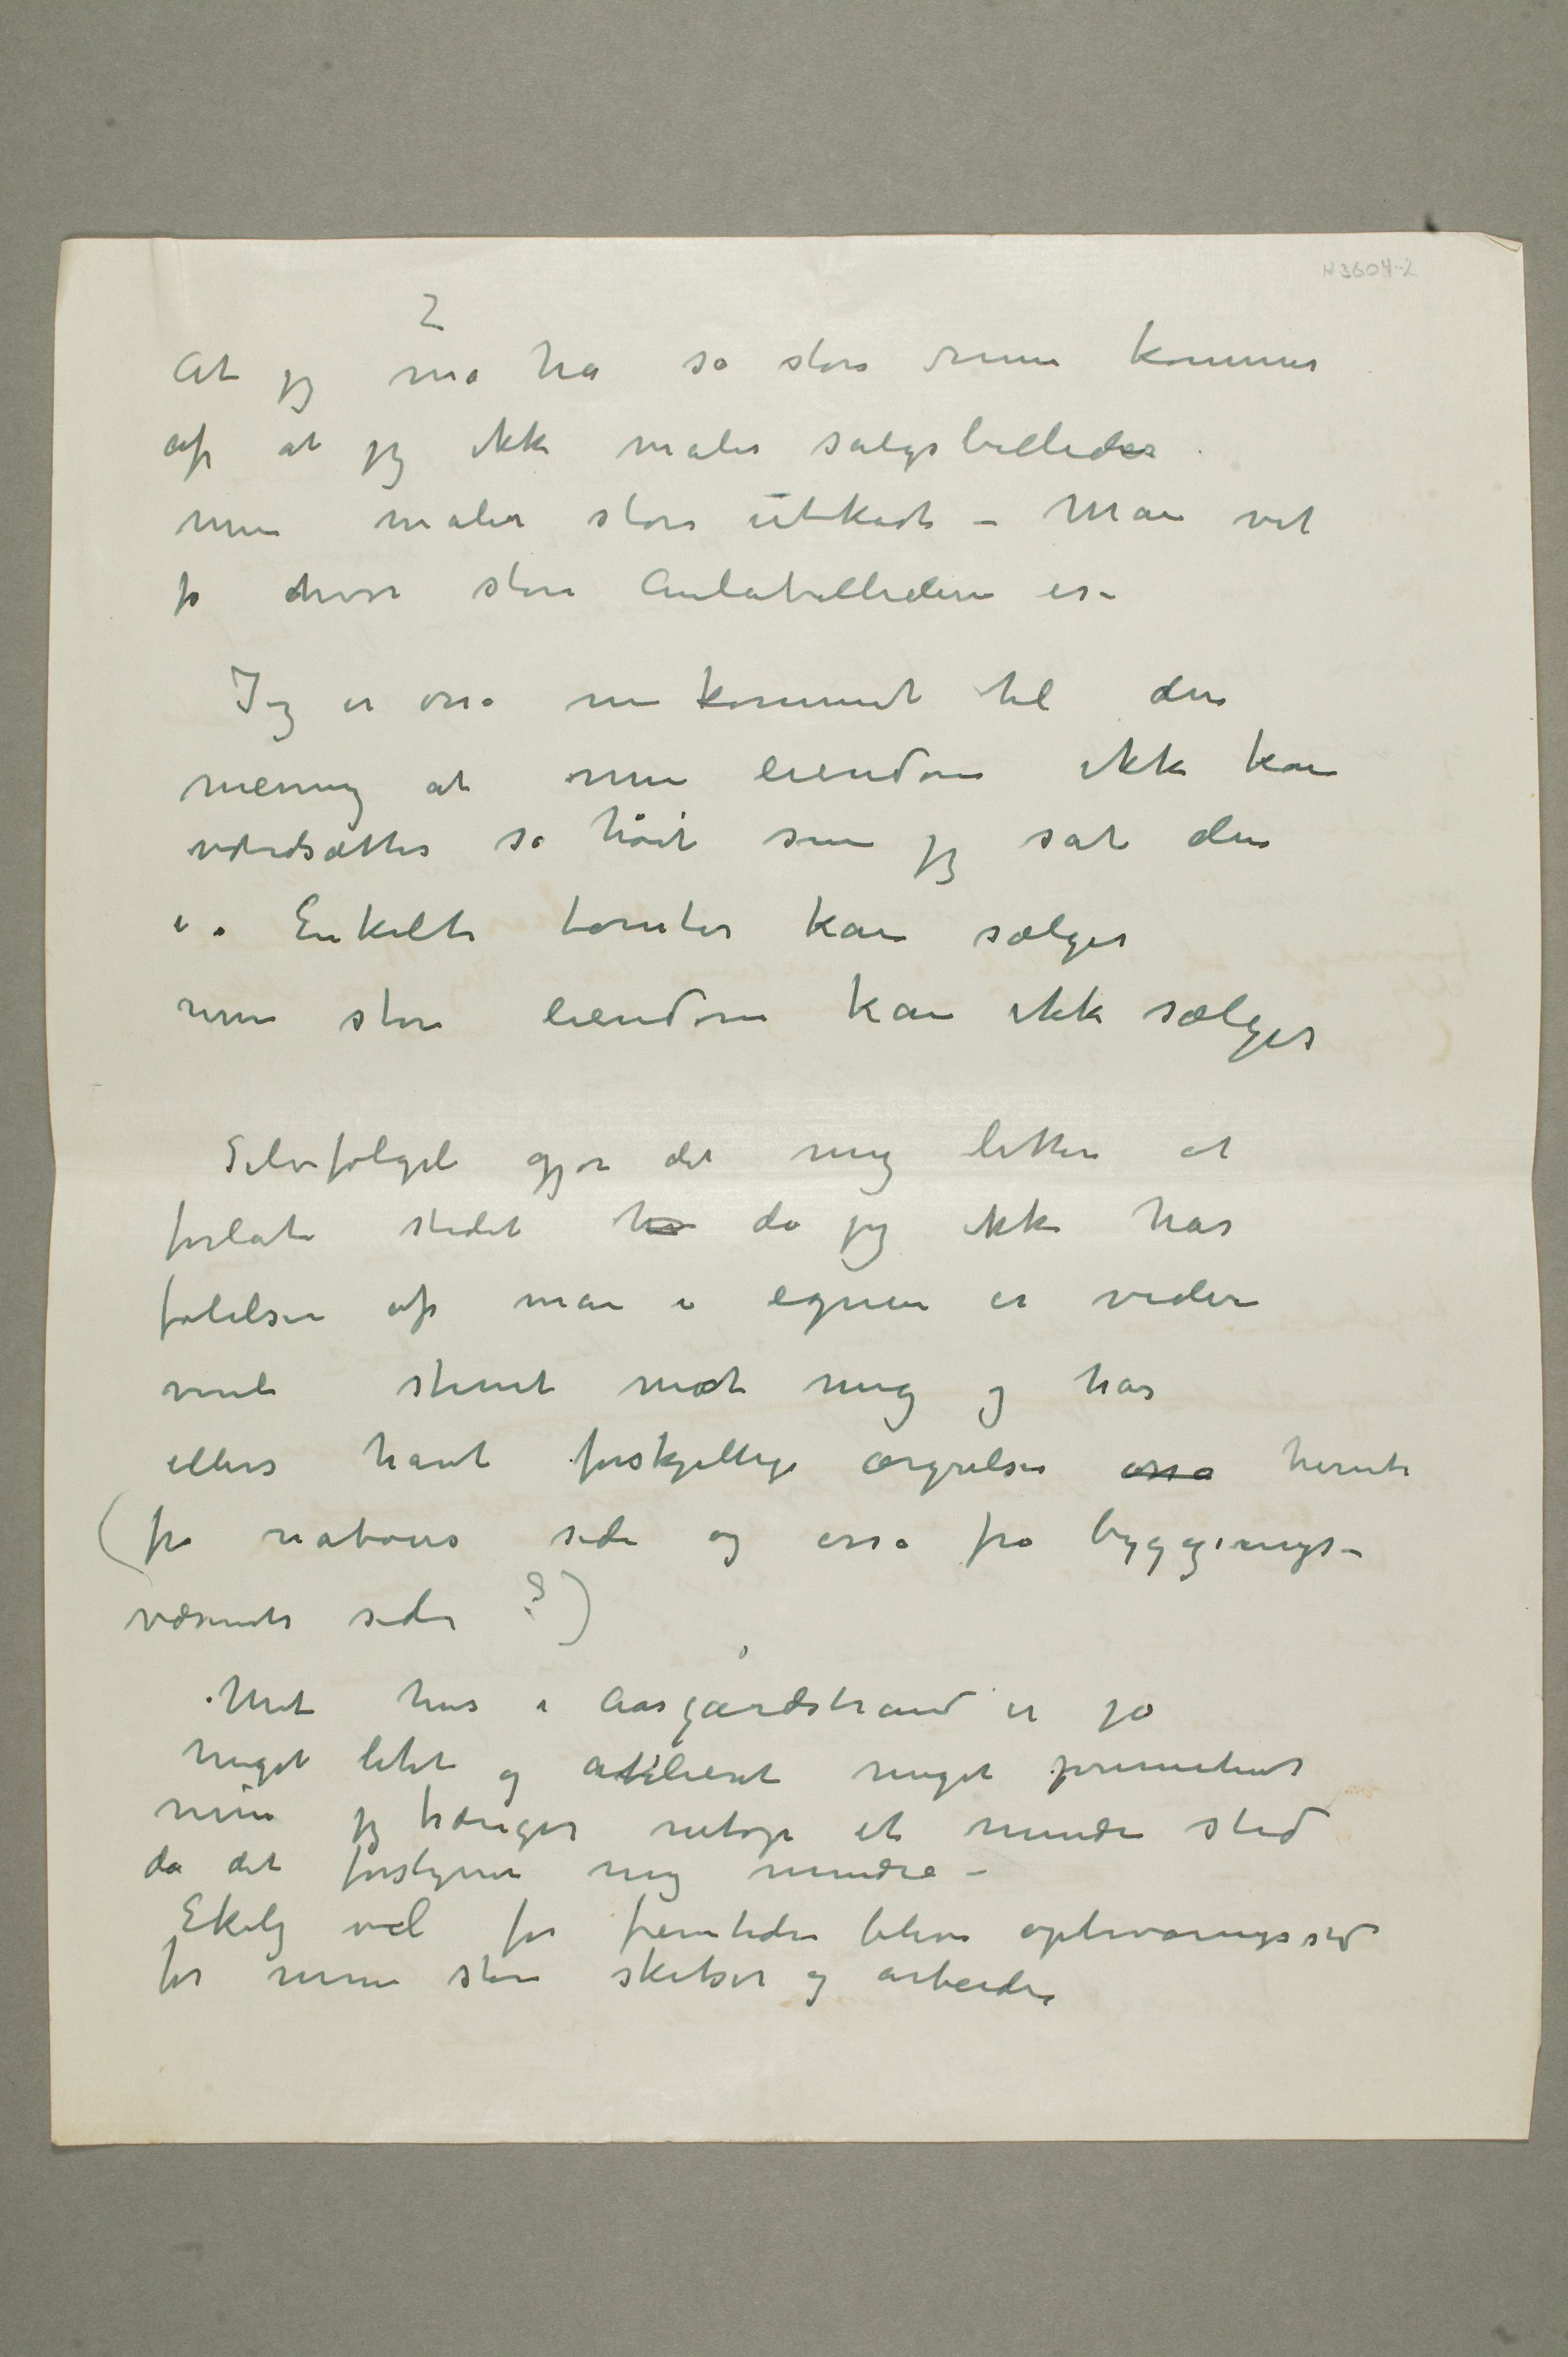 N 3604-2
2
At jeg må ha så store rum kommer
af at jeg ikke maler salgsbilleder
men maler store utkast – Man vet
jo hvor store Aulabilledene er –
Jeg er osså nu kommet til den
mening at min eiendom ikke kan
værdsættes så høit som jeg sat den
i. Enkelte tomter kan sælges
min store eiendom kan ikke sælges
Selvfølgeli gjør det mig lettere at
forlate stedet her da jeg ikke har
følelsen af man i egnen er videre
venli stemt mot mig og har
ellers havt forskjellige ærgrelser osså herute
(fra naboers side og osså fra bygnings-
væsnets side ?)
Mit hus i Aasgårdstrand er jo
meget litet og atelieret meget primitivt
men jeg trænger netop et mindre sted
da det forstyrrer mig mindre –
Ekely vil for fremtiden blive opbevaringssted
for mine store skitser og arbeider